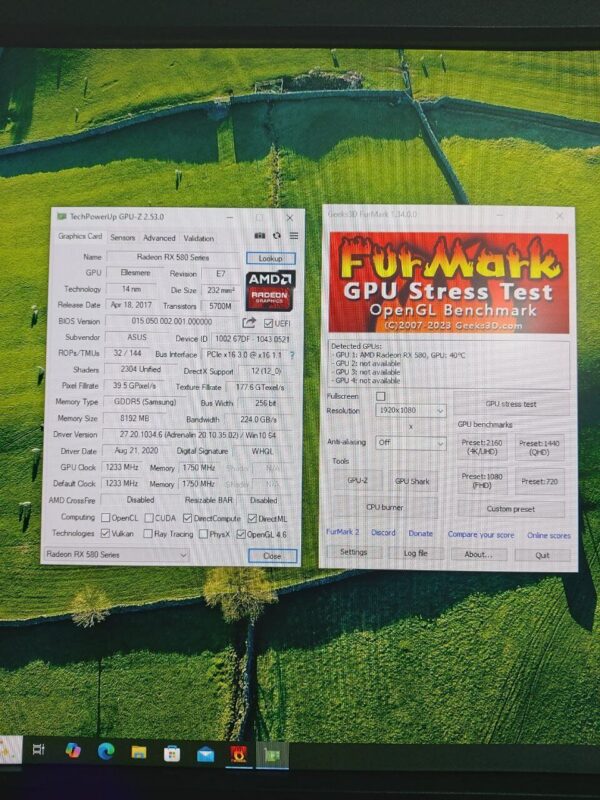 TechPowerUp GPU-Z 2.53.0
Graphics Card Sensors Advanced Validation
Name Radeon RX 580 Series Lookup
GPU Ellesmere Revision E7
Technology 14 nm Die Size 232 mm²
Release Date Apr 18, 2017 Transistors 5700M
AMD
RADEON
GRAPHICS
BIOS Version 015.050.002.001.000000 UEFI
Subvendor ASUS Device ID 1002 67DF - 1043 0521
ROPs/TMUs 32 / 144 Bus Interface PCIe x16 3.0 @ x16 1.1 ?
Shaders 2304 Unified DirectX Support 12 (12_0)
Pixel Fillrate 39.5 GPixel/s Texture Fillrate 177.6 GTexel/s
Memory Type GDDR5 (Samsung) Bus Width 256 bit
Memory Size 8192 MB Bandwidth 224.0 GB/s
Driver Version 27.20.1034.6 (Adrenalin 20.10.35.02) / Win10 64
Driver Date Aug 21, 2020 Digital Signature WHQL
GPU Clock 1233 MHz Memory 1750 MHz Shader N/A
Default Clock 1233 MHz Memory 1750 MHz Shader N/A
AMD CrossFire Disabled Resizable BAR Disabled
Computing OpenCL CUDA DirectCompute DirectML
Technologies Vulkan Ray Tracing PhysX OpenGL 4.6
Radeon RX 580 Series Close
Geeks3D FurMark 1.34.0.0
FurMark
GPU Stress Test
OpenGL Benchmark
(C)2007-2023 Geeks3D.com
Detected GPUs:
- GPU 1: AMD Radeon RX 580, GPU: 40°C
- GPU 2: not available
- GPU 3: not available
- GPU 4: not available
Fullscreen
Resolution 1920x1080
x
Anti-aliasing Off
Tools
GPU-Z GPU Shark
CPU burner
GPU stress test
GPU benchmarks
Preset:2160
(4K/UHD)
Preset:1440
(QHD)
Preset:1080
(FHD)
Preset:720
Custom preset
FurMark 2 Discord Donate Compare your score Online scores
Settings Log file About... Quit